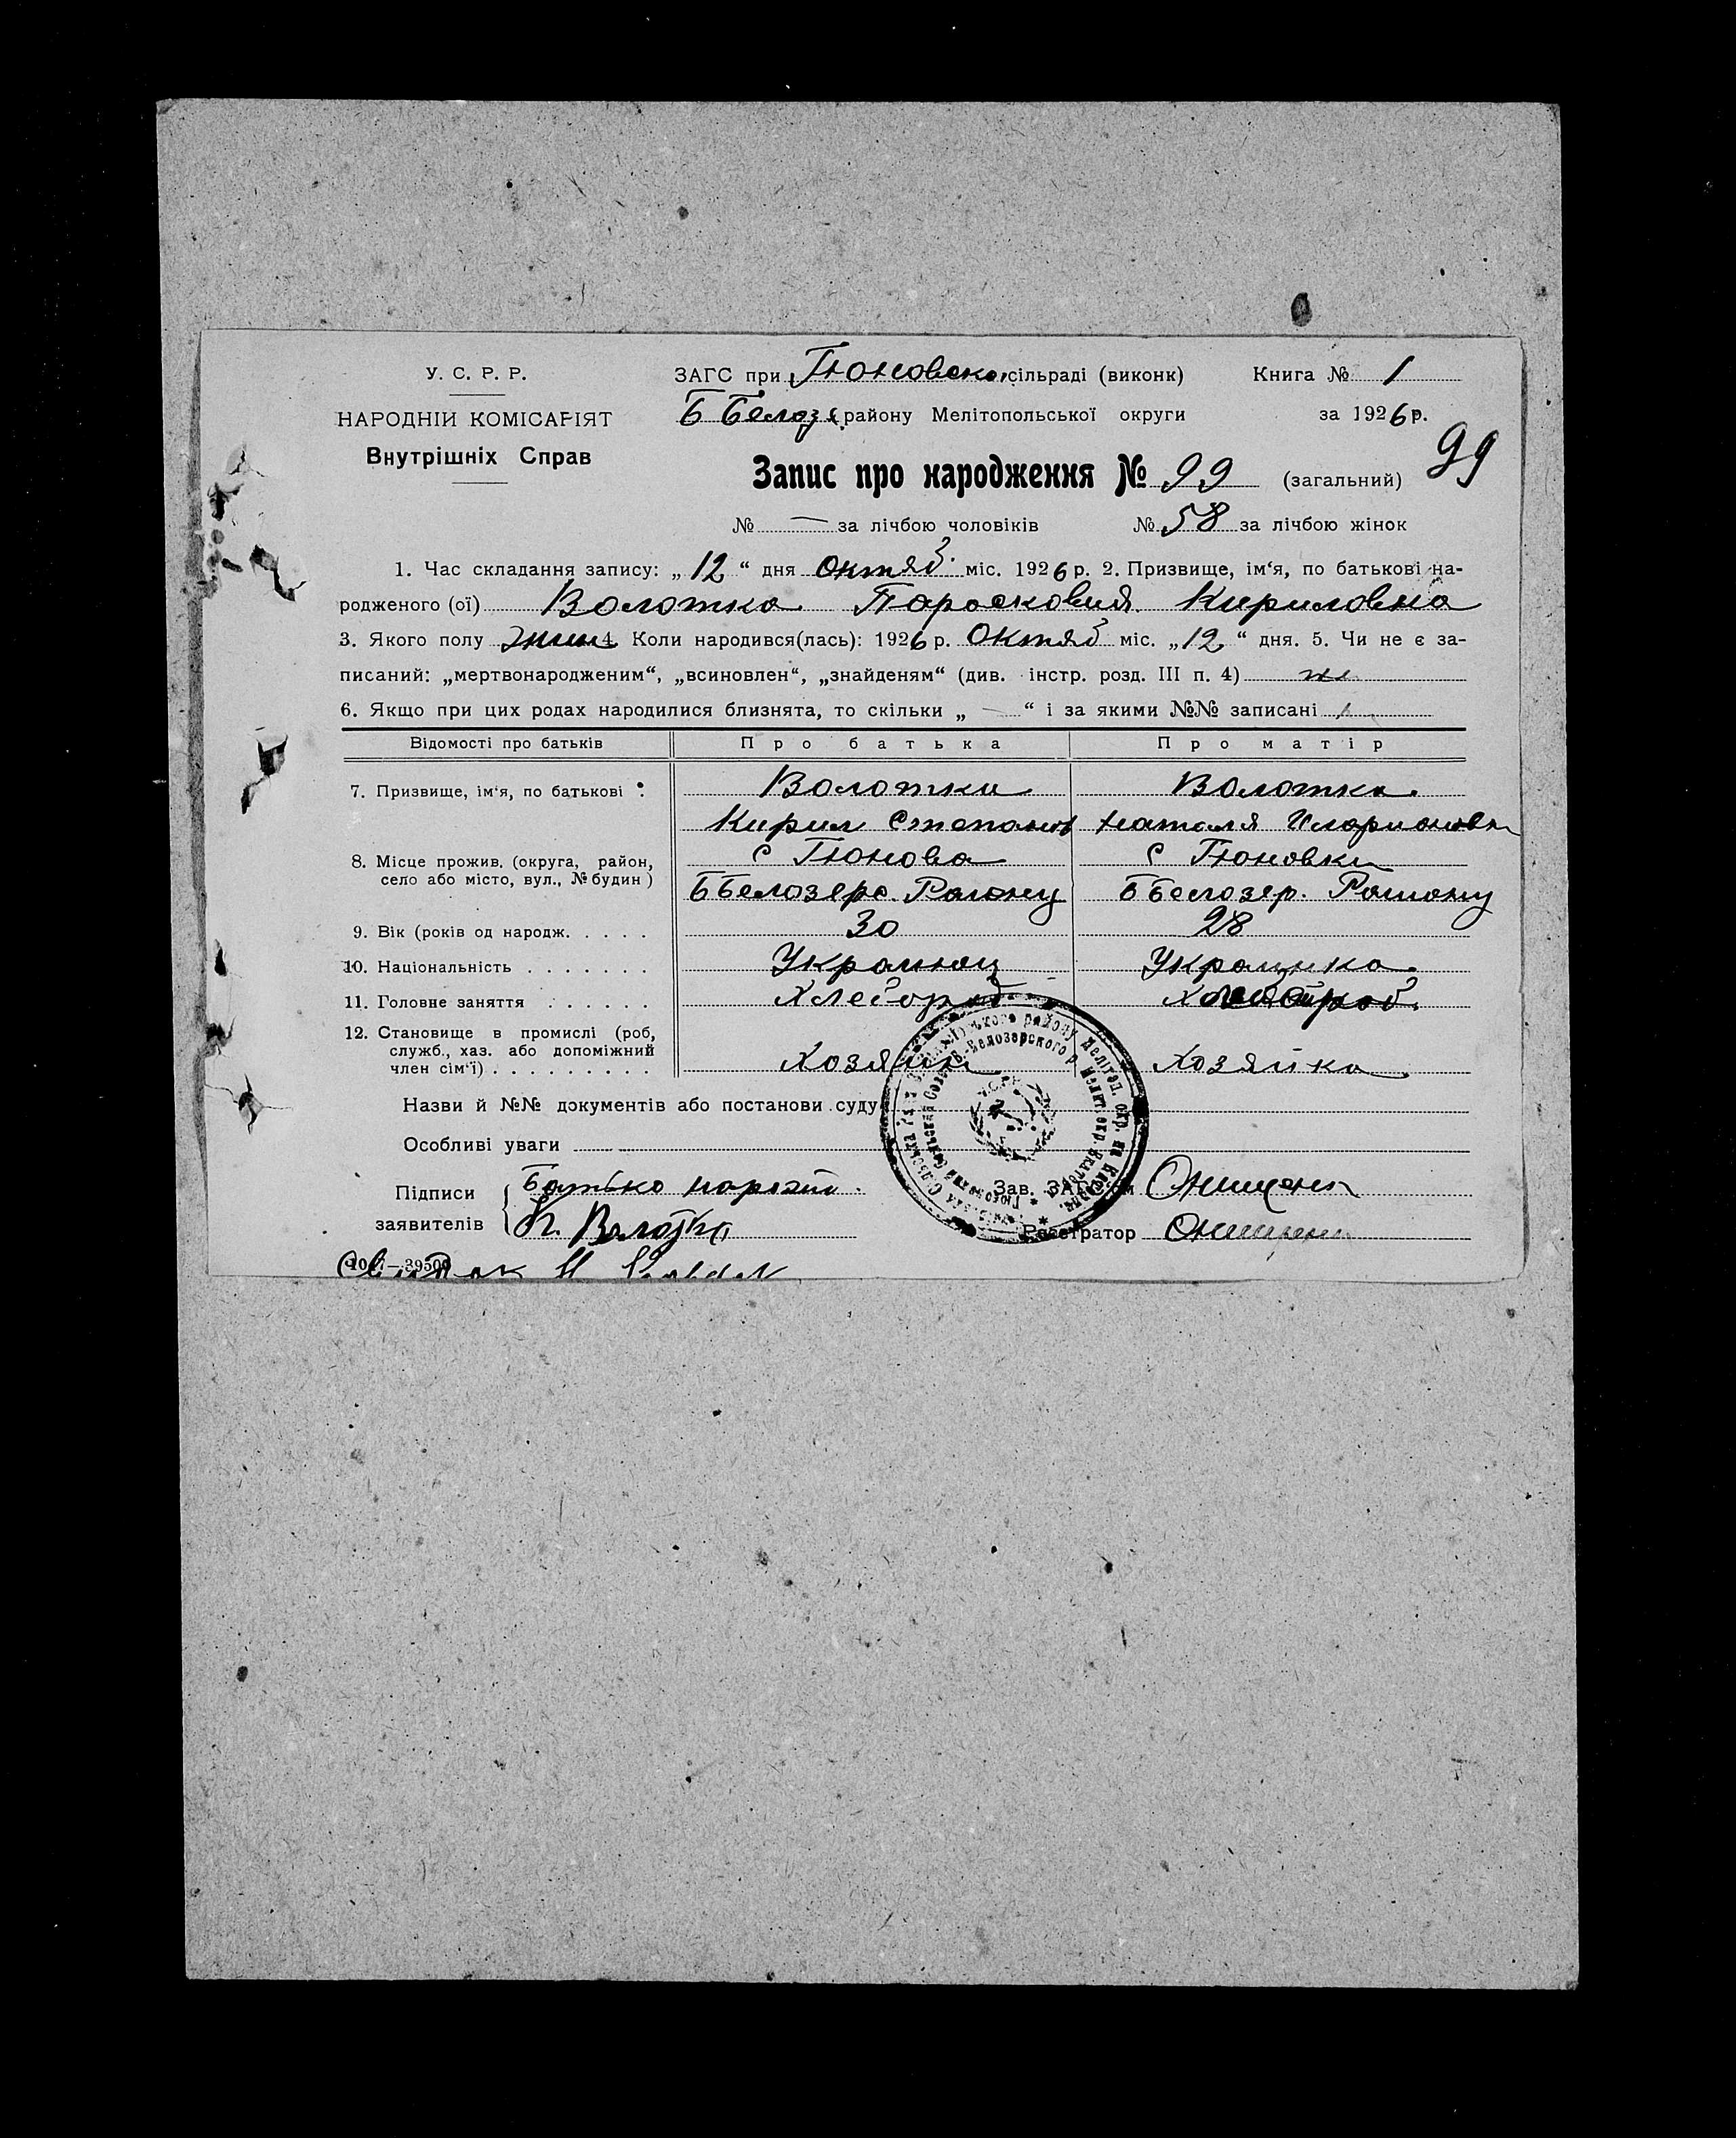 У. С. Р. Р.
НАРОДНІЙ КОМІСАРІЯТ
Внутрішніх Справ
ЗАГС при Тюновско, сільраді (виконк) Книга № 1
Б Белозе району Мелітопольської округи за 1926 р.
99
Запис про народження № 99 (загальний)
№ — за лічбою чоловіків № 58 за лічбою жінок
1. Час складання запису: „12“ дня октяб. міс. 1926 р. 2. Призвище, ім‘я, по батькові на-
родженого (ої) Волотка Парасковия Кириловна
3. Якого полу жин 4. Коли народився(лась): 1926 р. Октяб міс. „12“ дня. 5. Чи не є за-
писаний: „мертвонародженим“, „всиновлен“, „знайденям“ (див. інстр. розд. III п. 4)
6. Якщо при цих родах народилися близнята, то скільки „—“ і за якими №№ записані
Відомості про батьків Про батька Про матір
7. Призвище, ім‘я, по батькові Волотки Волотка.
Кирил Степанов Наталя Иларионовн
8. Місце прожив. (округа, район, с Тюнова с Тюновки
село або місто, вул., № будин) ББелозерс. Району ББелозер. Району
9. Вік (років од народж. . . . . . 30 28
10. Національність . . . . . . . Украинец Украинка.
11. Головне заняття . . . . . . Хлебороб
12. Становище в промислі (роб,
служб., хаз. або допоміжний
член сім‘ї) . . . . . . . . . Хозяин Хозяйка
Назви й №№ документів або постанови суду
Особливі уваги
Підписи Батько
заявителів К. Волотка
Зав. ЗАГС‘ом Онищенк
Реєстратор Онищенк